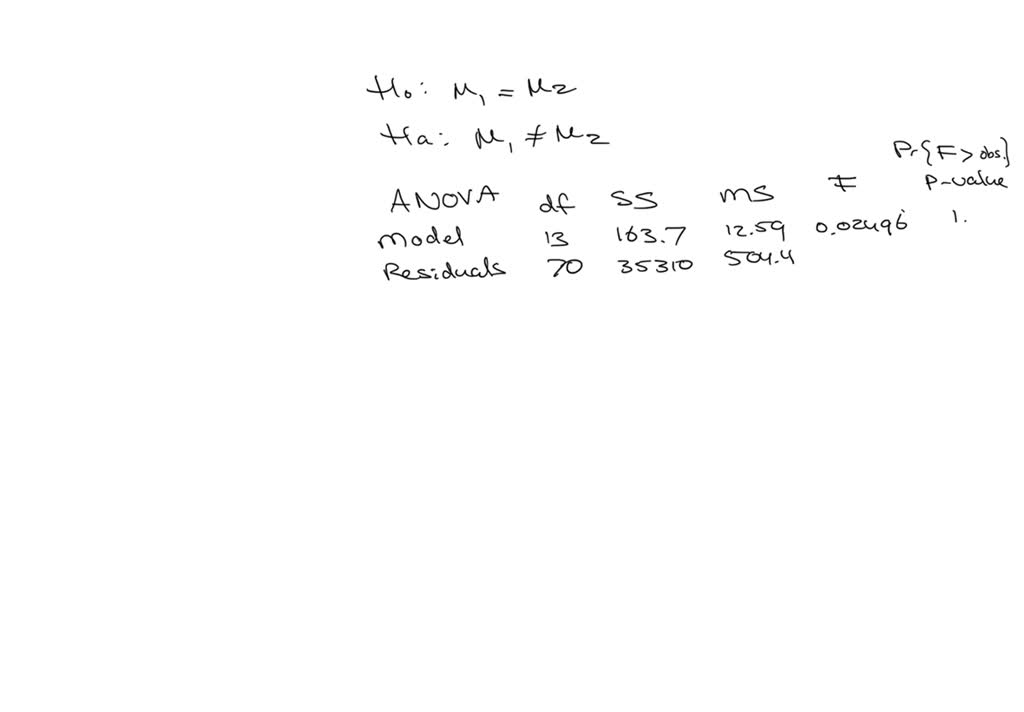 Ho: μ₁ = μ₂
Ha: μ₁ ≠ μ₂
Pr{F > obs.}
ANOVA df SS MS F P-value
Model 13 163.7 12.59 0.02496 1.
Residuals 70 35310 504.4